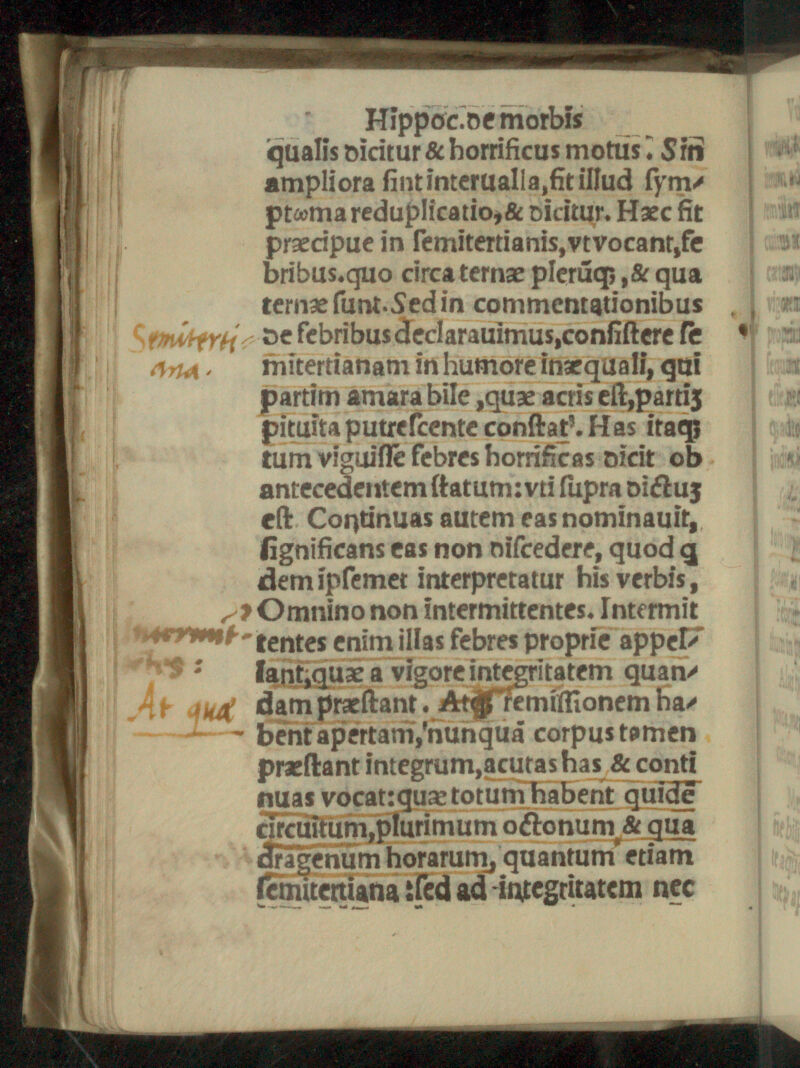 Hippoc. de morbis
qualis dicitur & horrificus motus. Sin
ampliora ſint interualla, fit illud ſym⸗
ptωma reduplicatio, & dicitur. Hæc fit
præcipue in ſemitertianis, vt vocant, fe
bribus. quo circa ternæ plerūq; , & qua
ternæ ſunt. Sed in commentationibus
Semiterti
de febribus declarauimus, conſiſtere ſe
ana.
mitertianam in humore inæquali, qui
partim amara bile , quæ acris eſt, partiʒ
pituita putreſcente conſtatꝰ. Has itaq;
tum viguiſſe febres horrificas dicit ob
antecedentem ſtatum: vti ſupra dictuʒ
eſt. Continuas autem eas nominauit,
ſignificans eas non diſcedere, quod q
dem ipſemet interpretatur his verbis,
Omnino non intermittentes. Intermit
tentes enim illas febres proprie appel⸗
lant, quæ a vigore integritatem quan⸗
dam præſtant. Atq; remiſſionem ha⸗
At quæ
bent apertam, nunquā corpus tamen
præſtant integrum, acutas has & conti
nuas vocat: quæ totum habent quidē
circuitum, plurimum octonum & qua
dragenum horarum, quantum etiam
ſemitertiana : ſed ad integritatem nec